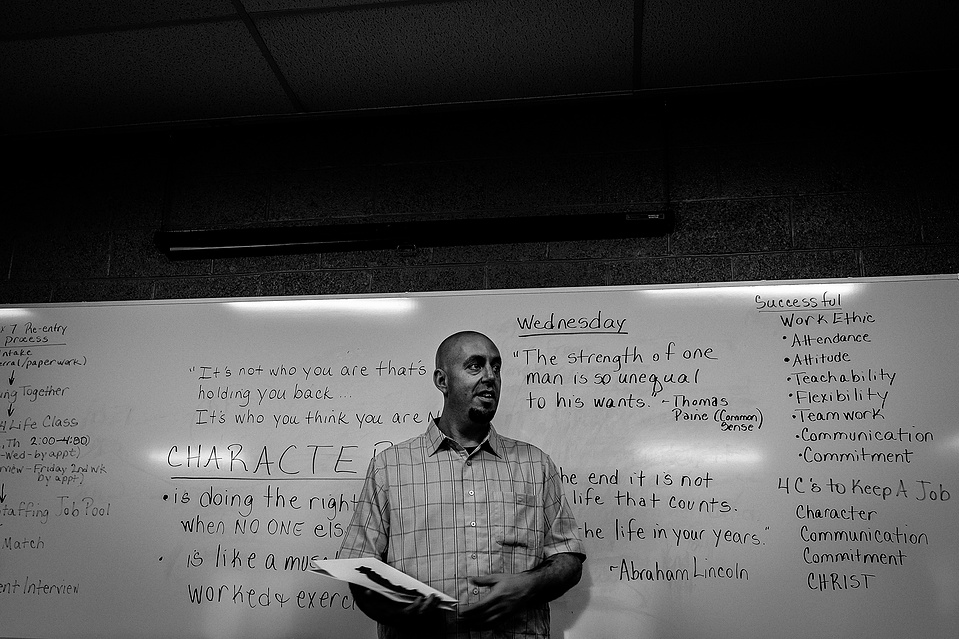 x 7 Pre-entry
Process
Intake
erral/paperwork)
ng Together
4 Life Class
Th 2:00-4:00)
-Wed-by appt)
rview-Friday 2nd wk
by appt)
taffing Job Pool
Match
ent Interview
"It's not who you are that's
holding you back...
It's who you think you are
CHARACTE
• is doing the right
when NO ONE els
• is like a mus
worked & exerc
Wednesday
"The strength of one
man is so unequal
to his wants." ~Thomas
Paine (Common
Sense)
he end it is not
life that counts.
he life in your years."
~Abraham Lincoln
Successful
Work Ethic
• Attendance
• Attitude
• Teachability
• Flexibility
• Teamwork
• Communication
• Commitment
4 C's to Keep A Job
Character
Communication
Commitment
CHRIST